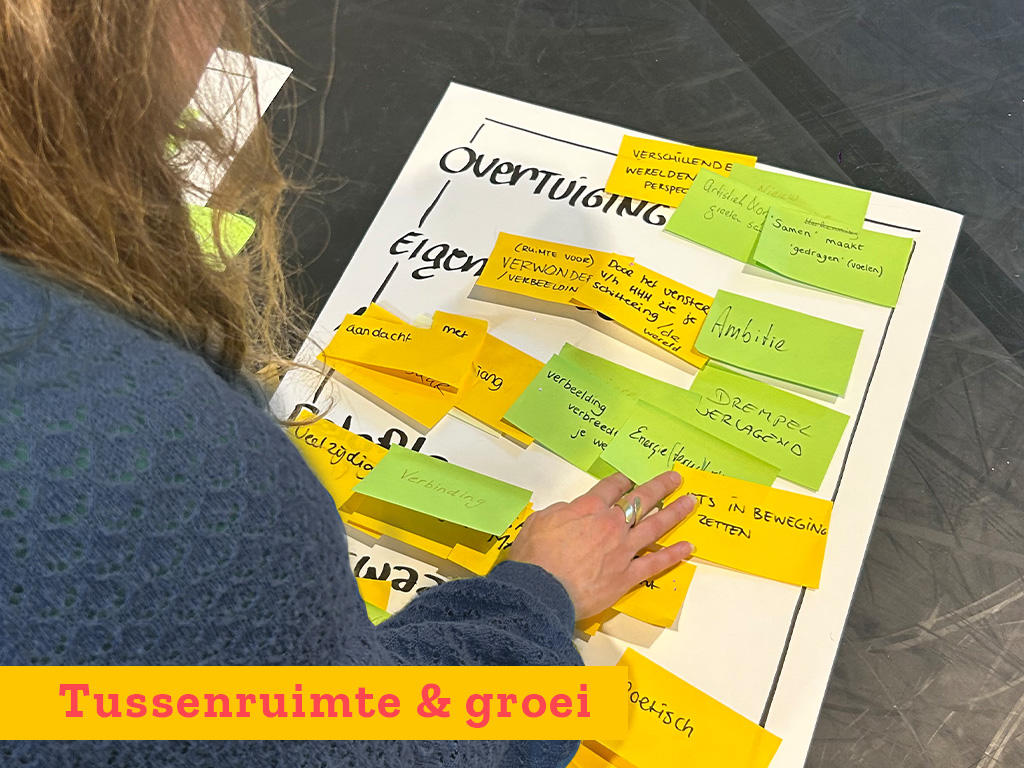 OVERTUIGING
VERSCHILLENDE
WERELDEN
PERSPEC
Artistiek
groeien
"Samen" maakt
'gedragen' (voelen)
Eigen
(RUIMTE VOOR)
VERWONDE
/VERBEELDIN
Door het venster
v/h HHH zie je
schittering /de
wereld
Ambitie
aandacht
met
iang
verbeelding
verbreed
je we
DREMPEL
VERLAGEND
Energie
Veelzijdig
Verbinding
TS IN BEWEGING
ZETTEN
Poetisch
Tussenruimte & groei